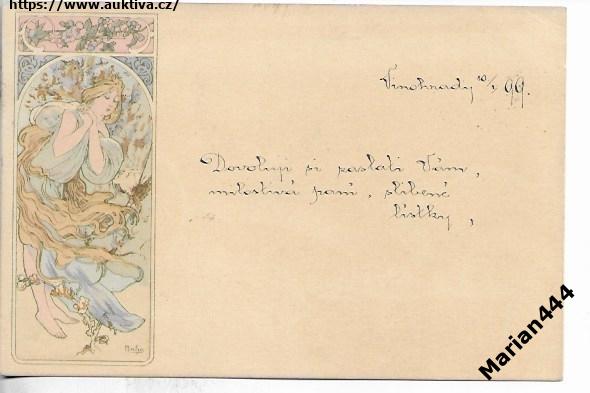 https://www.auktiva.cz/
Vinohrady 10/1 99.
Dovoluji si poslati Vám,
milostivá paní, slíbené
lístky,
Mucha
Marian444